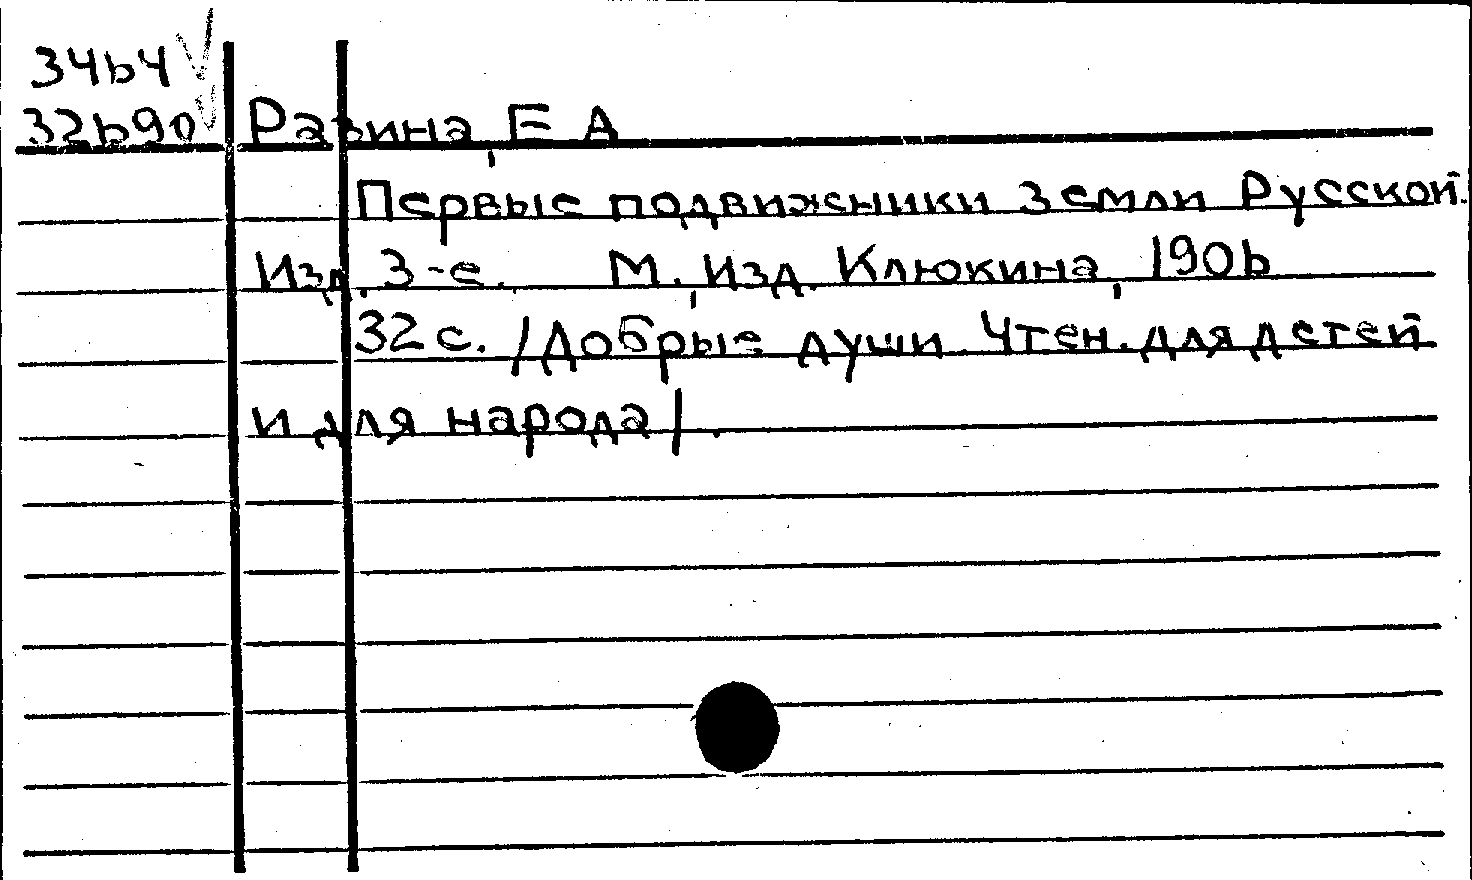 34б4
32б90 Разина, Е А
Первые подвижники Земли Русской.
Изд. 3-е. М., Изд. Клюкина, 1906
32 с. /Добрые души. Чтен. для детей
и для народа/.